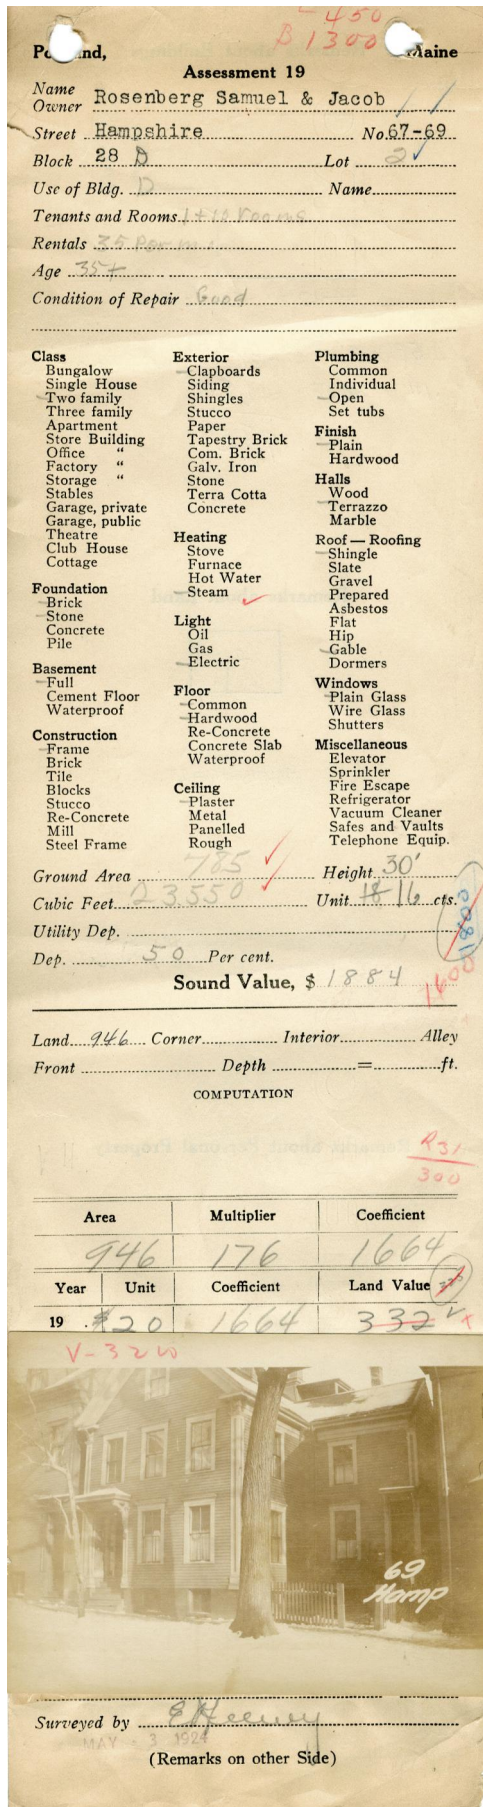 L 450
B 1300
Portland, Maine
Assessment 19
Name
Owner Rosenberg Samuel & Jacob
Street Hampshire No. 67-69
Block 28 D Lot 2
Use of Bldg. D Name
Tenants and Rooms 1 + 12 rooms
Rentals 35 Per m
Age 35+
Condition of Repair Good
Class
Bungalow
Single House
Two family
Three family
Apartment
Store Building
Office "
Factory "
Storage "
Stables
Garage, private
Garage, public
Theatre
Club House
Cottage
Foundation
Brick
Stone
Concrete
Pile
Basement
Full
Cement Floor
Waterproof
Construction
Frame
Brick
Tile
Blocks
Stucco
Re-Concrete
Mill
Steel Frame
Exterior
Clapboards
Siding
Shingles
Stucco
Paper
Tapestry Brick
Com. Brick
Galv. Iron
Stone
Terra Cotta
Concrete
Heating
Stove
Furnace
Hot Water
Steam
Light
Oil
Gas
Electric
Floor
Common
Hardwood
Re-Concrete
Concrete Slab
Waterproof
Ceiling
Plaster
Metal
Panelled
Rough
Plumbing
Common
Individual
Open
Set tubs
Finish
Plain
Hardwood
Halls
Wood
Terrazzo
Marble
Roof — Roofing
Shingle
Slate
Gravel
Prepared
Asbestos
Flat
Hip
Gable
Dormers
Windows
Plain Glass
Wire Glass
Shutters
Miscellaneous
Elevator
Sprinkler
Fire Escape
Refrigerator
Vacuum Cleaner
Safes and Vaults
Telephone Equip.
Ground Area 785 Height 30'
Cubic Feet 23550 Unit 18 16 cts.
1800
Utility Dep.
Dep. 50 Per cent.
Sound Value, $ 1884
1600
Land 946 Corner Interior Alley
Front Depth = ft.
COMPUTATION
R31
300
Area Multiplier Coefficient
946 176 1664
Year Unit Coefficient Land Value
19 $20 1664 332
69
Hamp
Surveyed by E Keeney
MAY 3 1924
(Remarks on other Side)